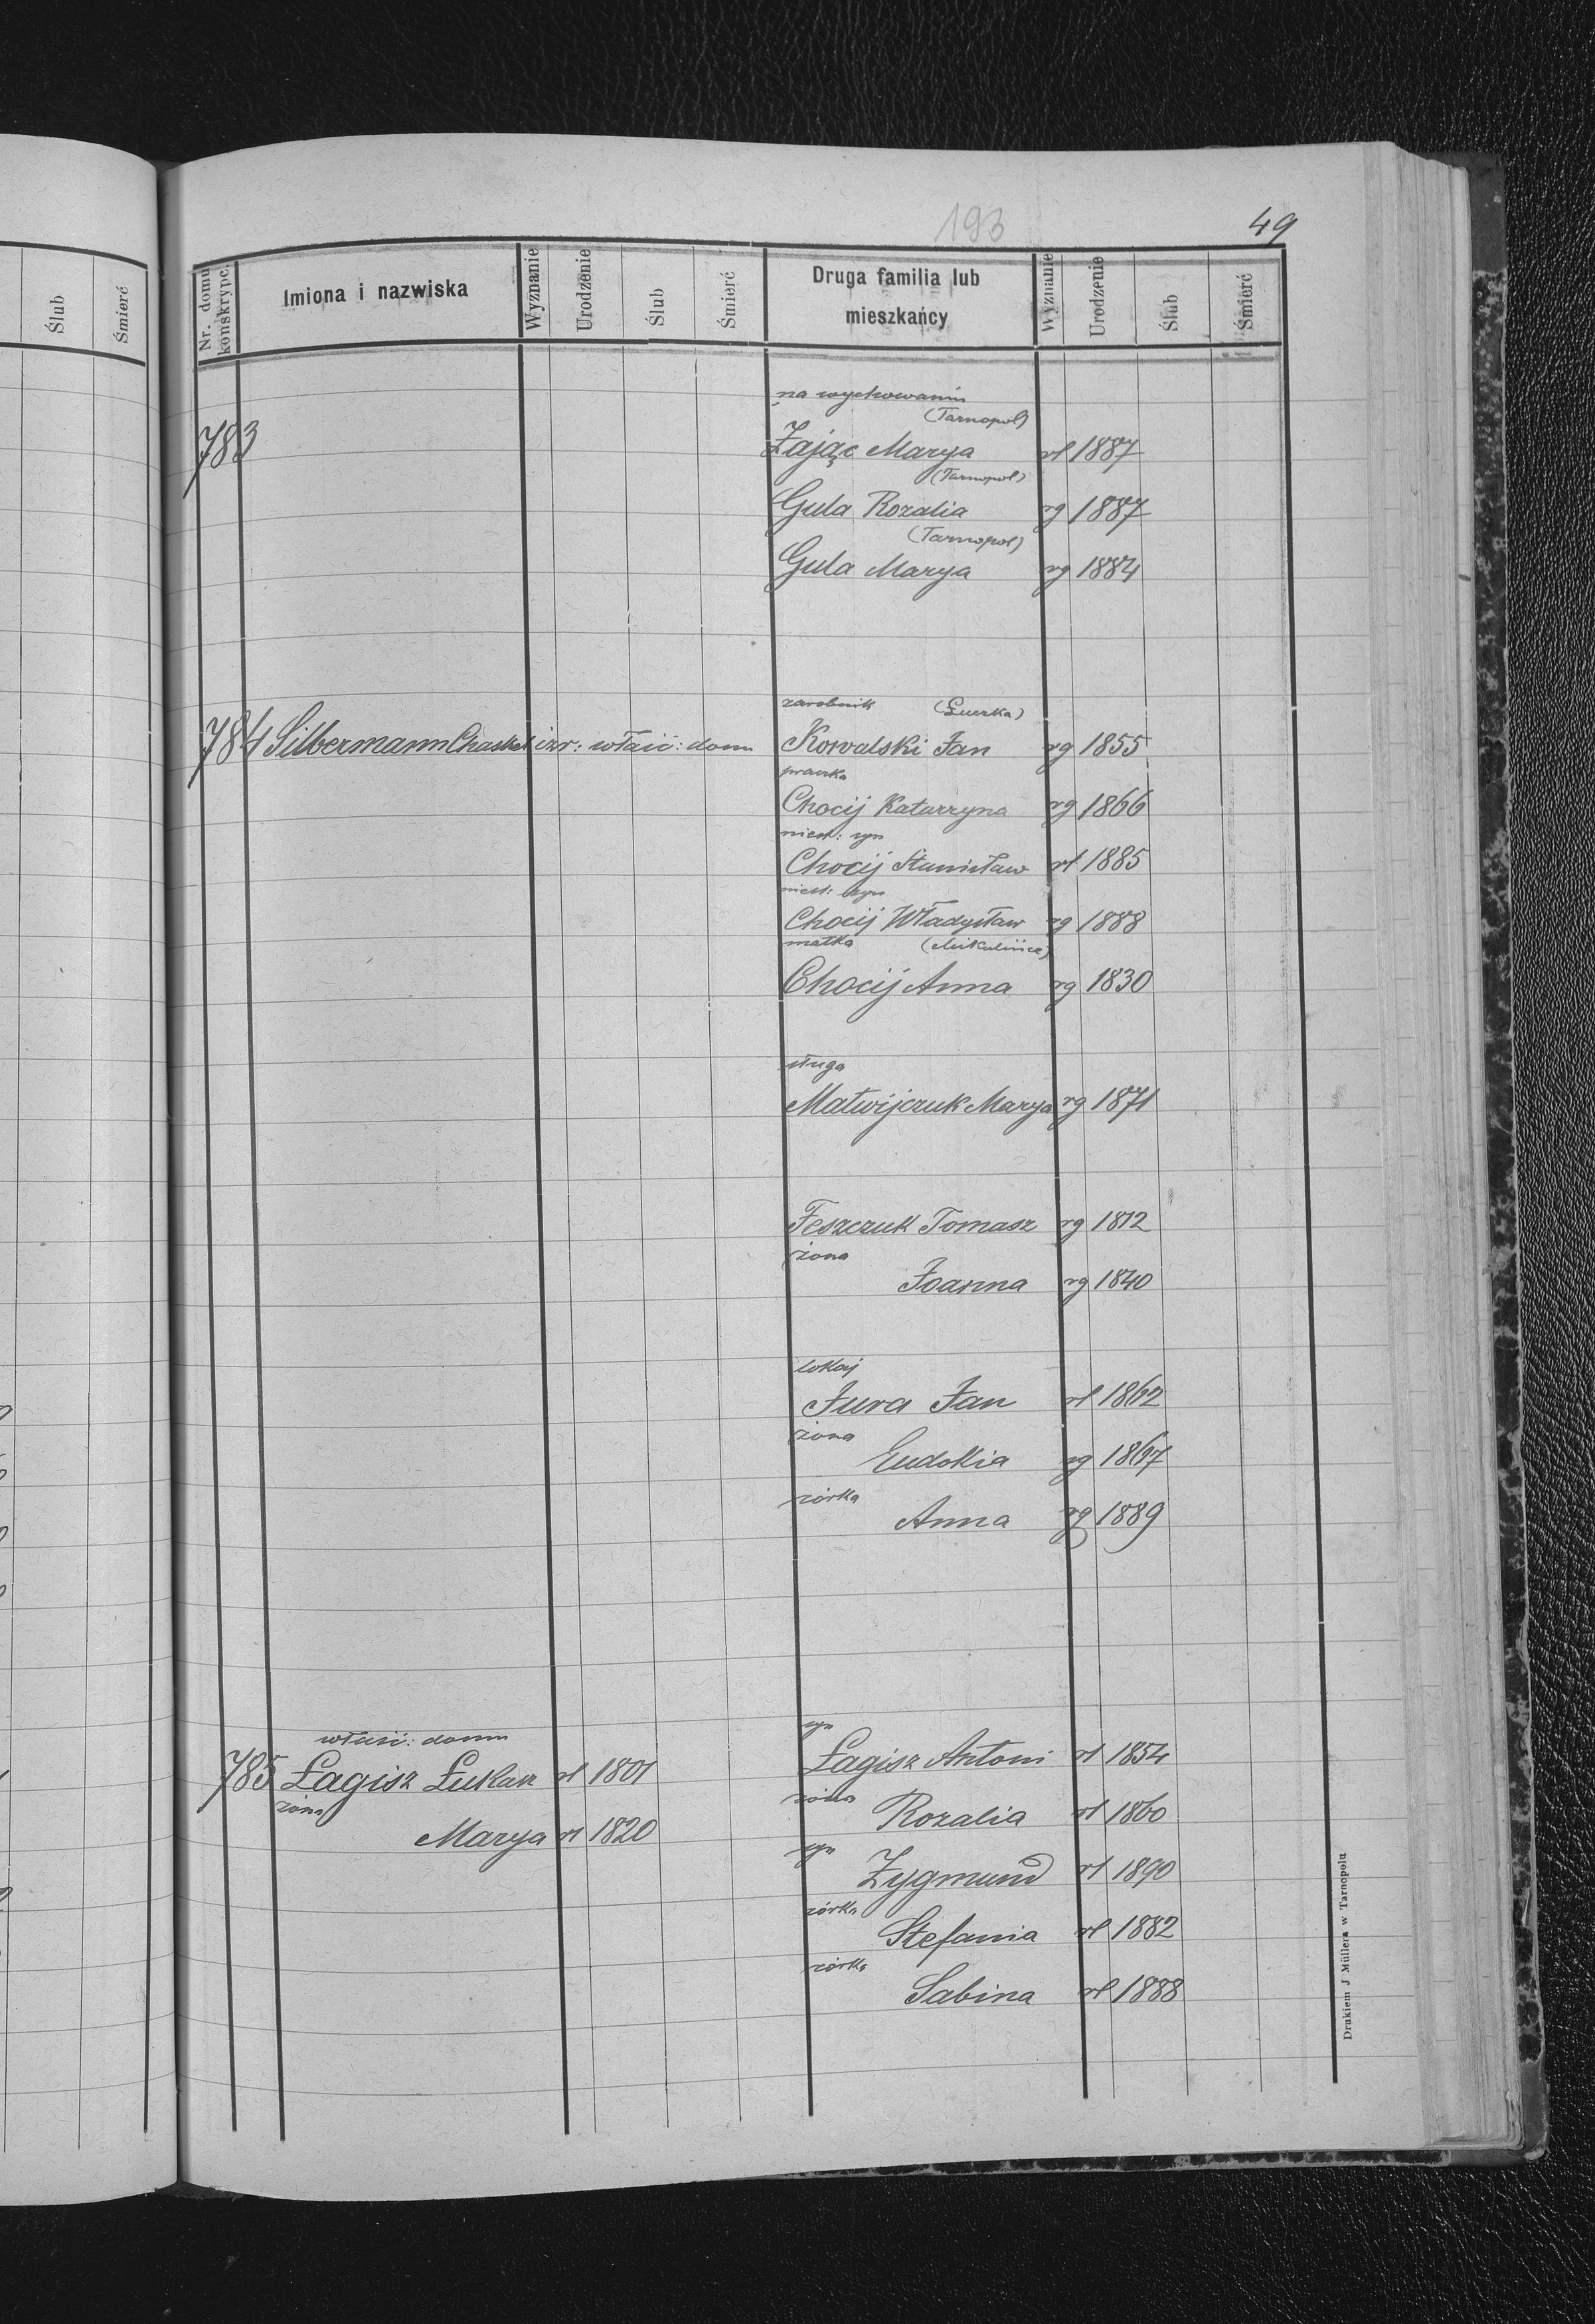 193
49
Ślub
Śmierć
Nr. domu konskrypc.
Imiona i nazwiska
Wyznanie
Urodzenie
Ślub
Śmierć
Druga familia lub
mieszkańcy
Wyznanie
Urodzenie
Ślub
Śmierć
na wychowaniu
(Tarnopol)
783 Zając Marya rl 1887
(Tarnopol)
Gula Rozalia rg 1887
(Tarnopol)
Gula Marya rg 1884
zarobnik
784 Silbermann Chaskel izr: właśc: domu Kowalski Jan rg 1855
praczka
Chocij Katarzyna rg 1866
nieśl: syn
Chocij Stanisław rl 1885
nieśl: syn
Chocij Władysław rg 1888
matka (Mikulińce)
Chocij Anna rg 1830
sługa
Matwijczuk Marya rg 1871
Feszczuk Tomasz rg 1812
żona
Joanna rg 1840
lokaj
Jura Jan rl 1862
żona
Eudokia rg 1867
córka
Anna rg 1889
właśc: domu syn
785 Łagisz Łukasz rl 1801 Łagisz Antoni rl 1854
żona żona
Marya rl 1820 Rozalia rl 1860
syn
Zygmund rl 1890
córka
Stefania rl 1882
córka
Sabina rl 1888
Drukiem J Müllera w Tarnopolu